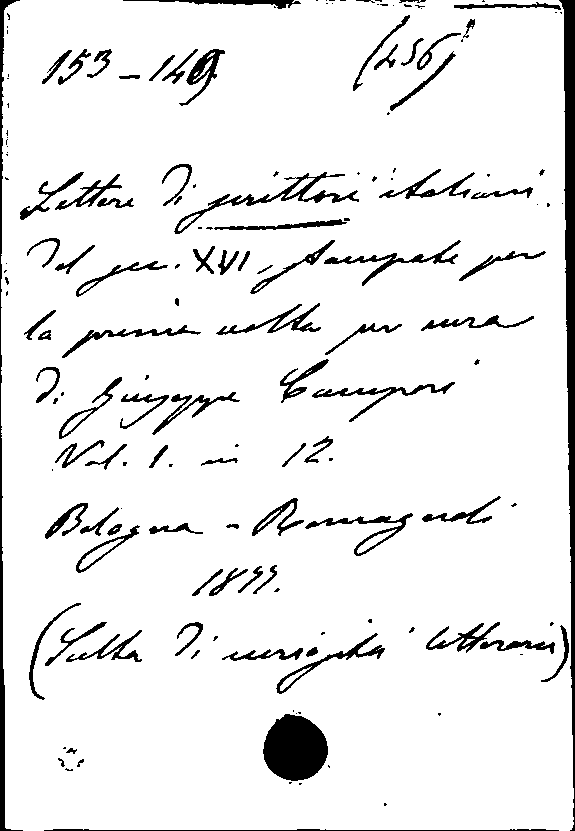 153-149 (456)
Lettere di scrittori italiani
del sec. XVI, stampate per
la prima volta per cura
di Giuseppe Campori
Vol. 1. in 12.
Bologna - Romagnoli
1877.
(Scelta di curiosità letterarie)